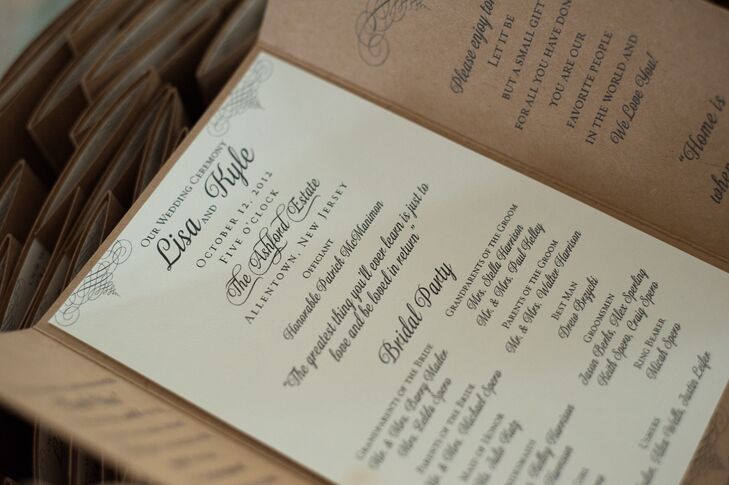 Our Wedding Ceremony
Lisa and Kyle
October 12, 2012
Five o'clock
The Ashford Estate
Allentown, New Jersey
Officiant
Honorable Patrick McManimon
"The greatest thing you'll ever learn is just to
love and be loved in return"
Bridal Party
Grandparents of the Bride
Mr. & Mrs. Barry Mader
Mrs. Zelda Spero
Parents of the Bride
Mr. & Mrs. Michael Spero
Maid of Honor
Bridesmaids
Harrison
Grandparents of the Groom
Mrs. Stella Harrison
Mr. & Mrs. Paul Kelley
Parents of the Groom
Mr. & Mrs. Walter Harrison
Best Man
Drew Brzycki
Groomsmen
Jason Berks, Alex Sperling
Keith Spero, Craig Spero
Ring Bearer
Micah Spero
Ushers
Alex Wells, Justin Leifer
Please enjoy to
Let it be
but a small gift
for all you have don
you are our
favorite people
in the world and
We Love You!
"Home is
whe